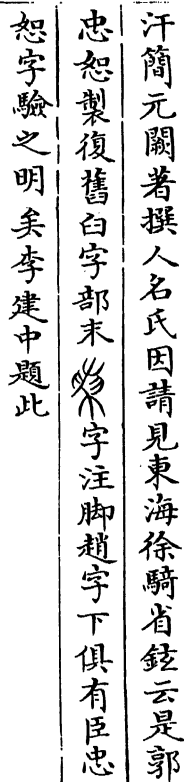 汗簡元闕著撰人名氏因請見東海徐騎省鉉云是郭
忠恕製復舊臼字部末字注脚趙字下俱有臣忠
恕字驗之明矣李建中題此